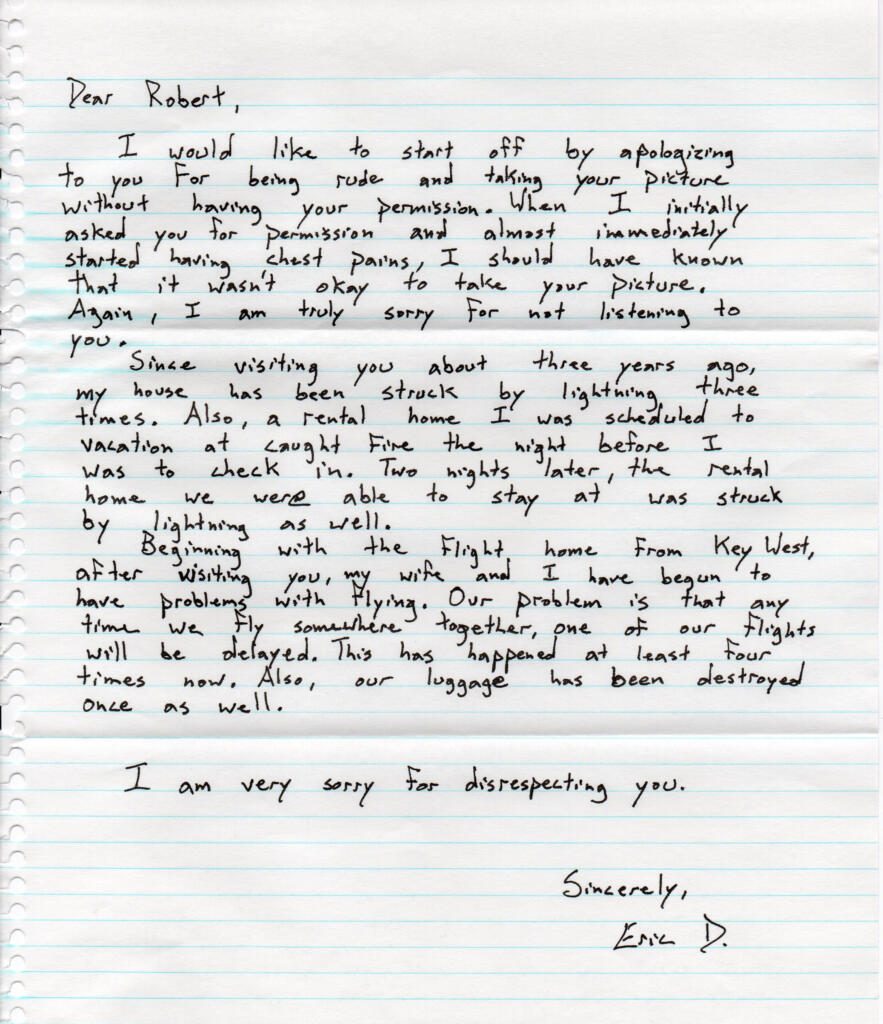 Dear Robert,
I would like to start off by apologizing
to you for being rude and taking your picture
without having your permission. When I initially
asked you for permission and almost immediately
started having chest pains, I should have known
that it wasn't okay to take your picture.
Again, I am truly sorry for not listening to
you.
Since visiting you about three years ago,
my house has been struck by lightning three
times. Also, a rental home I was scheduled to
vacation at caught fire the night before I
was to check in. Two nights later, the rental
home we were able to stay at was struck
by lightning as well.
Beginning with the flight home from Key West,
after visiting you, my wife and I have begun to
have problems with flying. Our problem is that any
time we fly somewhere together, one of our flights
will be delayed. This has happened at least four
times now. Also, our luggage has been destroyed
once as well.
I am very sorry for disrespecting you.
Sincerely,
Eric D.